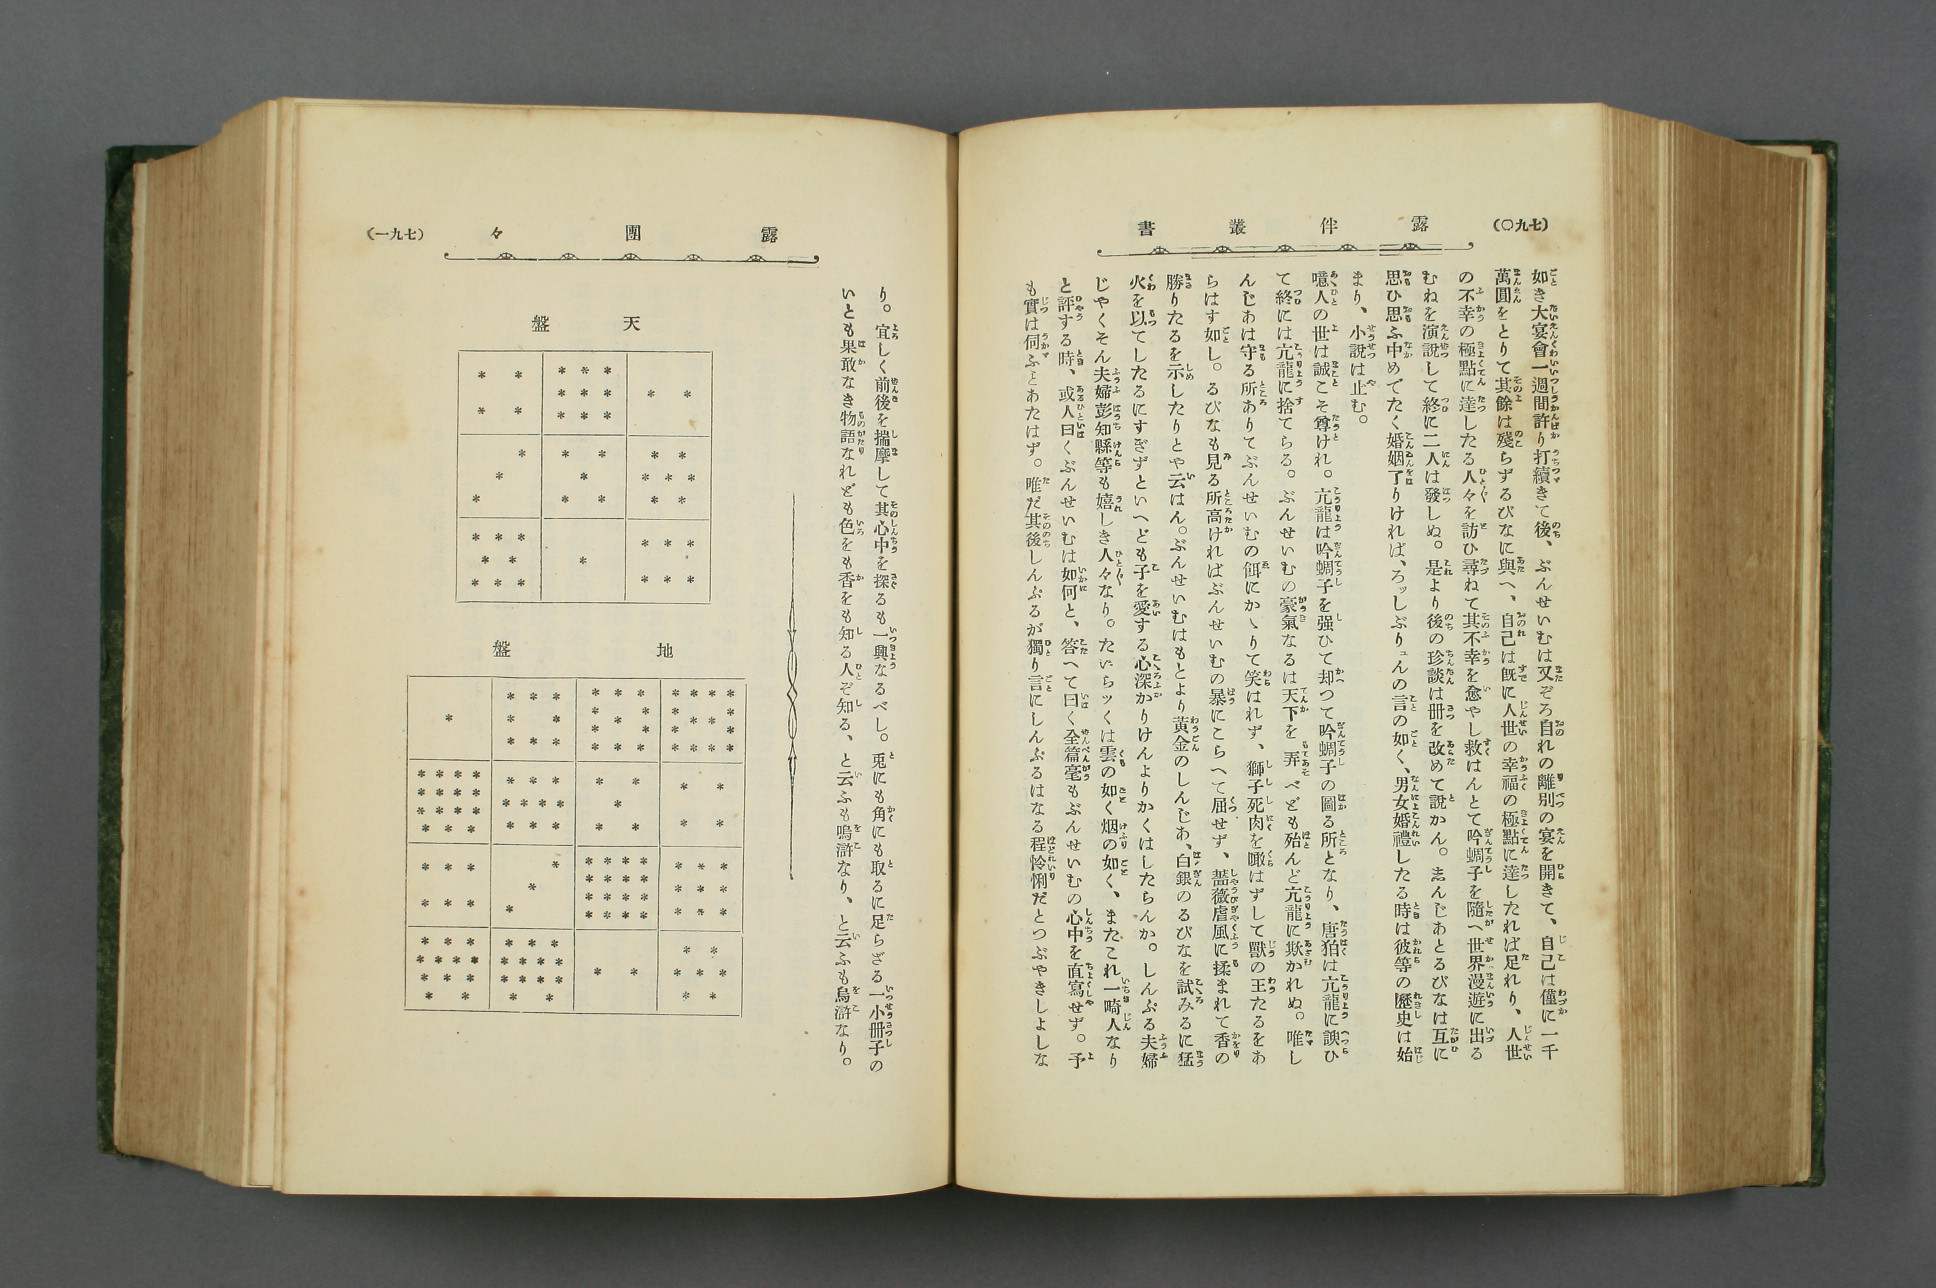 (七九〇)
露伴叢書
如き大宴會一週間許り打續きて後、ぶんせいむは又ぞろ自れの離別の宴を開きて、自己は僅に一千
萬圓をとりて其餘は殘らずるびなに與へ、自己は既に人世の幸福の極點に達したれば足れり、人世
の不幸の極點に達したる人々を訪ひ尋ねて其不幸を愈やし救はんとて吟蜩子を隨へ世界漫遊に出る
むねを演説して終に二人は發しぬ。是より後の珍談は冊を改めて說かん。志んじあとるびなは互に
思ひ思ふ中めでたく婚姻了りければ、ろッしぶりュんの言の如く、男女婚禮したる時は彼等の歷史は始
まり、小說は止む。
噫人の世は誠こそ尊けれ。亢龍は吟蜩子を强ひて却つて吟蜩子の圖る所となり、唐狛は亢龍に諛ひ
て終には亢龍に捨てらる。ぶんせいむの豪氣なるは天下を弄べども殆んど亢龍に欺かれぬ。唯し
んじあは守る所ありてぶんせいむの餌にかゝりて笑はれず、獅子死肉を噉はずして獸の王たるをあ
らはす如し。るびなも見る所高ければぶんせいむの暴にこらへて屈せず、薔薇虐風に揉まれて香の
勝りたるを示したりとや云はん。ぶんせいむはもとより黄金のしんじあ、白銀のるびなを試みるに猛
火を以てしたるにすぎずといへども子を愛する心深かりけんよりかくはしたらんか。しんぷる夫婦
じやくそん夫婦彭知縣等も嬉しき人々なり。たいらックは雲の如く烟の如く、まだこれ一畸人なり
と評する時、或人曰くぶんせいむは如何と、答へて曰く全篇毫もぶんせいむの心中を直寫せず。予
も實は伺ふことあたはず。唯だ其後しんぷるが獨り言にしんぷるはなる程怜悧だとつぶやきしよしな
(七九一)
露團々
り。宜しく前後を揣摩して其心中を探るも一興なるべし。兎にも角にも取るに足らざる一小冊子の
いとも果敢なき物語なれども色をも香をも知る人ぞ知る、と云ふも嗚滸なり、と云ふも烏滸なり。
天盤
地盤